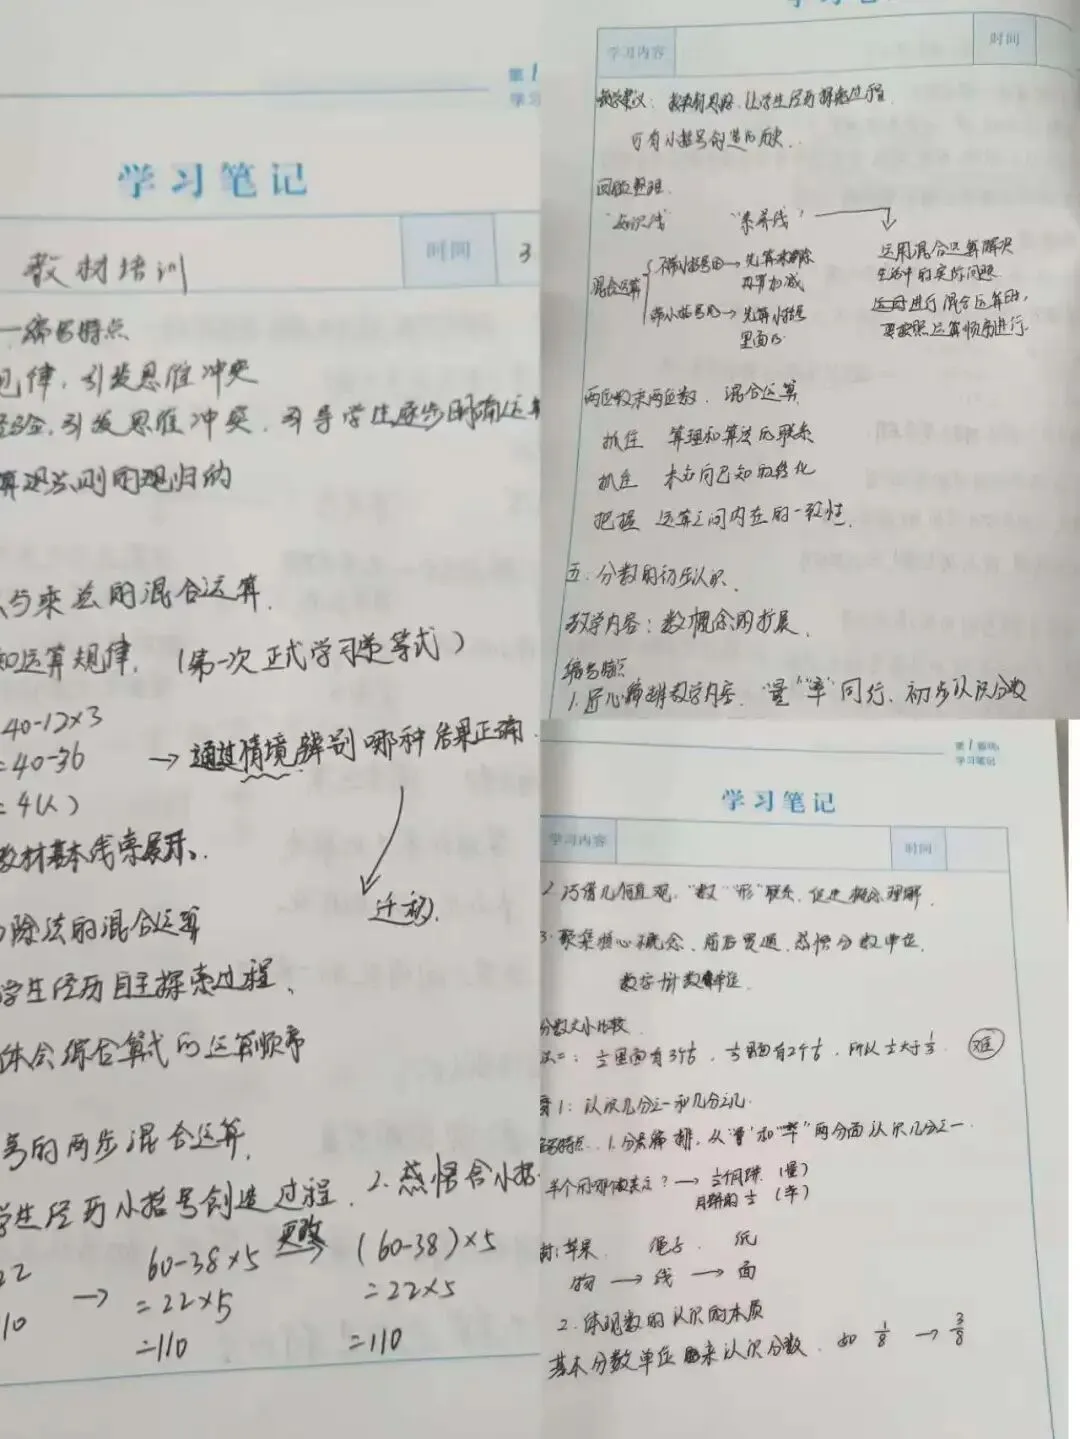 第1
学习
学习笔记
教材培训
时间 3
编写特点
规律，引发思维冲突
经验，引发思维冲突，引导学生逐步明确运算
算理法则同规归的
与乘法的混合运算.
和运算规律. (第一次正式学习递等式)
40-12×3
=40-36 → 通过情境辨别哪种结果正确.
=4(人)
教材基本线索展开.
迁移.
除法的混合运算
学生经历自主探索过程.
体会综合算式的运算顺序
号的两步混合运算.
学生经历小括号创造过程. 2.感悟含小括
22 → 60-38×5 更改 (60-38)×5
110 =22×5 =22×5
=110 =110
学习笔
学习内容 时间
教学建议：教材有思路，让学生经历探索过程.
可有小括号创造的历史..
回顾整理.
"知识线" "素养线"
混合运算
不带小括号的→先算乘除
再算加减
带小括号的→先算小括号
里面的.
运用混合运算解决
生活中的实际问题.
进行混合运算时,
要按照运算顺序进行.
两位数乘两位数. 混合运算.
抓住 算理和算法的联系
抓住 未知向已知的转化
把握 运算之间内在的一致性.
五.分数的初步认识.
教学内容：数概念的扩展.
编写特点
1.匠心编排教学内容. "量""率"同行、初步认识分数
第1
学习笔记
学习笔记
学习内容 时间
2.巧借几何直观，"数""形"联系，促进概念理解.
3.聚集核心概念、前后贯通、感悟分数单位.
数字 计数单位.
分数大小比较.
法二：1/2里面有3个1/6，1/3里面有2个1/6，所以1/2大于1/3. 难
1：认识几分之一和几分之几.
特点.. 1.分类编排，从"量"和"率"两方面认识几分之一.
半个用哪个数表示？→ 1/2个月饼 (量)
月饼的1/2 (率)
苹果. 绳子. 纸
物 → 线 → 面
2.体现数的认识的本质
基本分数单位来认识分数. 如 1/8 → 3/8